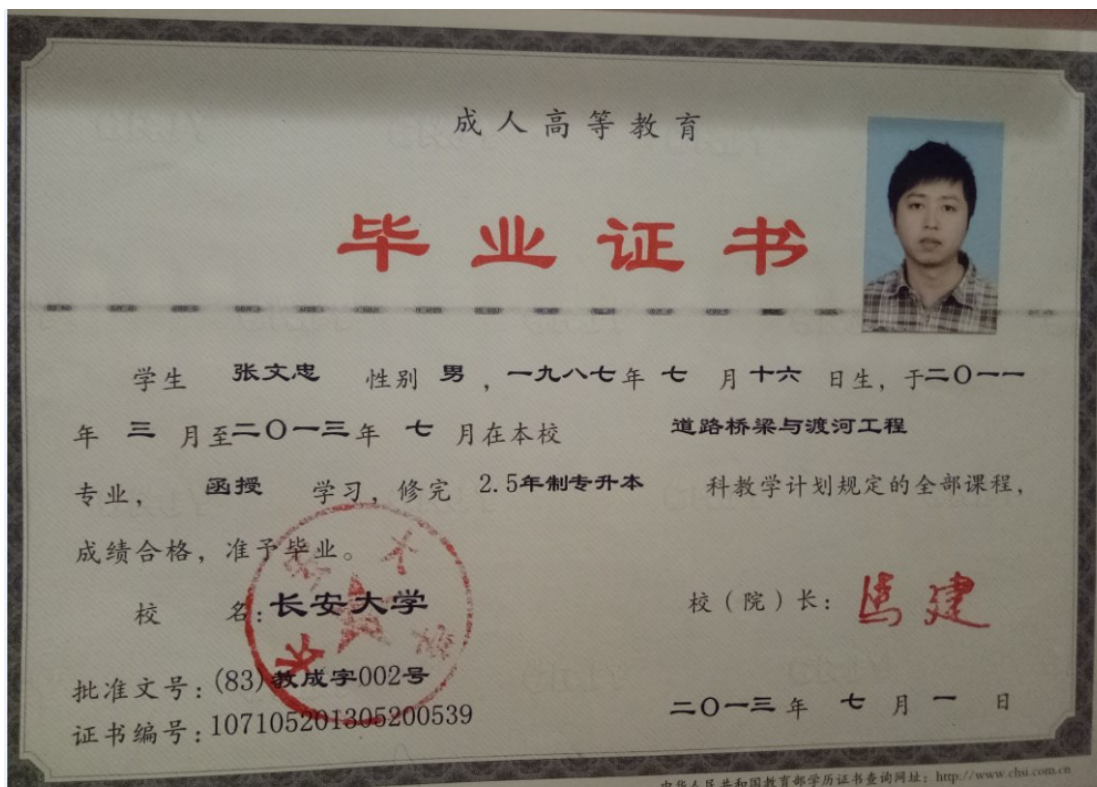 成人高等教育
毕业证书
学生 张文忠 性别 男 ，一九八七年 七 月十六 日生，于二〇一一
年 三 月至二〇一三年 七 月在本校 道路桥梁与渡河工程
专业， 函授 学习，修完 2.5年制专升本 科教学计划规定的全部课程，
成绩合格，准予毕业。
校 名：长安大学
校（院）长：马建
批准文号：(83)教成字002号
二〇一三年 七 月 一 日
证书编号：107105201305200539
中华人民共和国教育部学历证书查询网址：http://www.chsi.com.cn